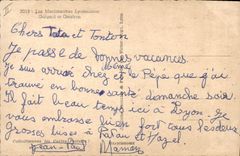 3013 - Les Marionnettes Lyonnaises
Guignol et Gnafron
Chers Tata et Tonton
Je passe de bonnes vacances.
Je suis arrivé chez Mémé et le Pépé que j'ai
trouvé en bonne santé dimanche soir.
Il fait beau temps ici à Lyon. Je
vous embrasse bien fort tous les deux
grosses bises à et
Jean-Paul Maman